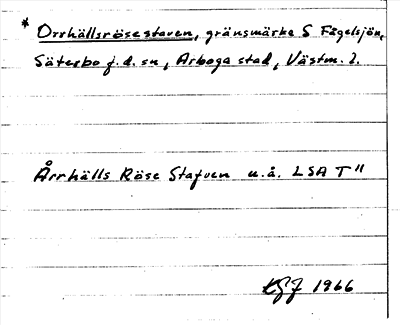 * Orrhällsrösestaven, gränsmärke S Fågelsjön,
Säterbo f.d. sn, Arboga stad, Västm. l.
Årrhälls Röse Stafven u.å. LSA T 11
1966